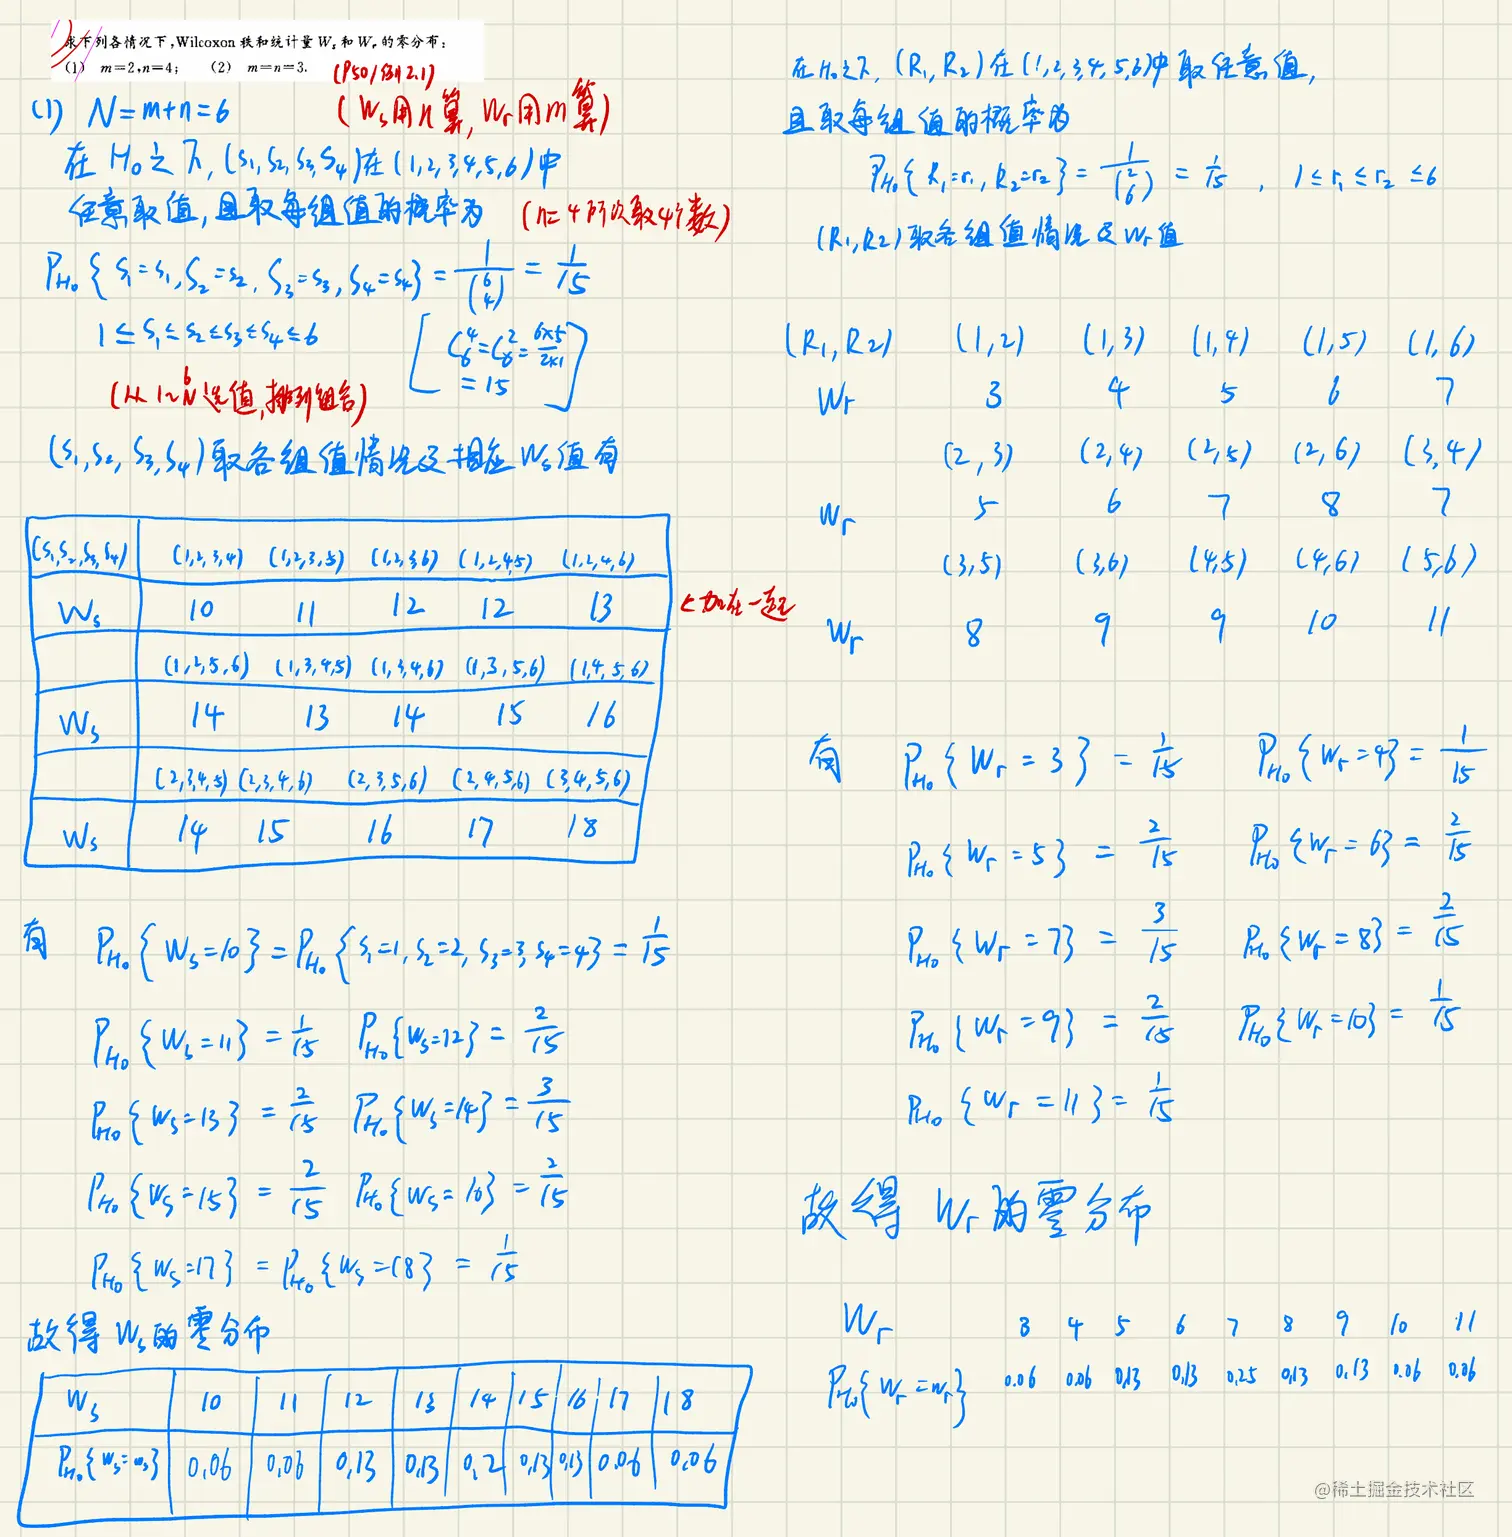 求下列各情况下,Wilcoxon 秩和统计量 Wₛ 和 Wᵣ 的零分布:
(1) m=2,n=4; (2) m=n=3.
(P50/例2.1)
(Ws用n算, Wr用m算)
(1) N=m+n=6
在 H₀ 之下, (S₁,S₂,S₃,S₄)在(1,2,3,4,5,6)中
任意取值,且取每组值的概率为
(n=4 所以取4个数)
P_{H₀}{S₁=s₁,S₂=s₂,S₃=s₃,S₄=s₄}=1/(6 4)=1/15
1≤S₁≤s₂≤s₃≤s₄≤6
[C₆⁴=C₆²=6×5/2×1
=15]
(从1~N 选值,排列组合)
6
(S₁,S₂,S₃,S₄)取各组值情况及相应Ws值有
(S₁,S₂,S₃,S₄) (1,2,3,4) (1,2,3,5) (1,2,3,6) (1,2,4,5) (1,2,4,6)
Ws 10 11 12 12 13
←加在一起
(1,2,5,6) (1,3,4,5) (1,3,4,6) (1,3,5,6) (1,4,5,6)
Ws 14 13 14 15 16
(2,3,4,5) (2,3,4,6) (2,3,5,6) (2,4,5,6) (3,4,5,6)
Ws 14 15 16 17 18
有 P_{H₀}{Ws=10}=P_{H₀}{S₁=1,S₂=2,S₃=3,S₄=4}=1/15
P_{H₀}{Ws=11}=1/15 P_{H₀}{Ws=12}=2/15
P_{H₀}{Ws=13}=2/15 P_{H₀}{Ws=14}=3/15
P_{H₀}{Ws=15}=2/15 P_{H₀}{Ws=16}=2/15
P_{H₀}{Ws=17}=P_{H₀}{Ws=18}=1/15
故得 Ws的零分布
Ws 10 11 12 13 14 15 16 17 18
P_{H₀}{Ws=ws} 0.06 0.06 0.13 0.13 0.2 0.13 0.13 0.06 0.06
在H₀之下, (R₁,R₂)在(1,2,3,4,5,6)中取任意值,
且取每组值的概率为
P_{H₀}{R₁=r₁,R₂=r₂}=1/(2 6)=1/15, 1≤r₁≤r₂≤6
(R₁,R₂)取各组值情况及Wr值
(R₁,R₂) (1,2) (1,3) (1,4) (1,5) (1,6)
Wr 3 4 5 6 7
(2,3) (2,4) (2,5) (2,6) (3,4)
Wr 5 6 7 8 7
(3,5) (3,6) (4,5) (4,6) (5,6)
Wr 8 9 9 10 11
有 P_{H₀}{Wr=3}=1/15 P_{H₀}{Wr=4}=1/15
P_{H₀}{Wr=5}=2/15 P_{H₀}{Wr=6}=2/15
P_{H₀}{Wr=7}=3/15 P_{H₀}{Wr=8}=2/15
P_{H₀}{Wr=9}=2/15 P_{H₀}{Wr=10}=1/15
P_{H₀}{Wr=11}=1/15
故得 Wr的零分布
Wr 3 4 5 6 7 8 9 10 11
P_{H₀}{Wr=wr} 0.06 0.06 0.13 0.13 0.25 0.13 0.13 0.06 0.06
@稀土掘金技术社区